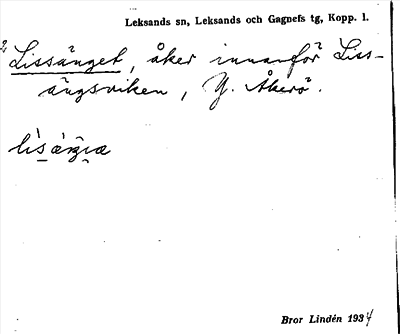 Leksands sn, Leksands och Gagnefs tg, Kopp. l.
2 Lissänget, åker innanför Liss-
ängsviken, Y. Åkerö.
Bror Lindén 1934